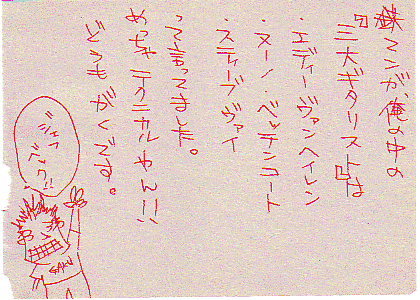 鉄マンが、俺の中の
『三大ギタリスト』は
・エディー・ヴァンヘイレン
・ヌーノ・ベッテンコート
・スティーブ ヴァイ
って言ってました。
めっちゃ テクニカルやん!!
どうもがくです。
ジェフ
ベック!!
GAKU